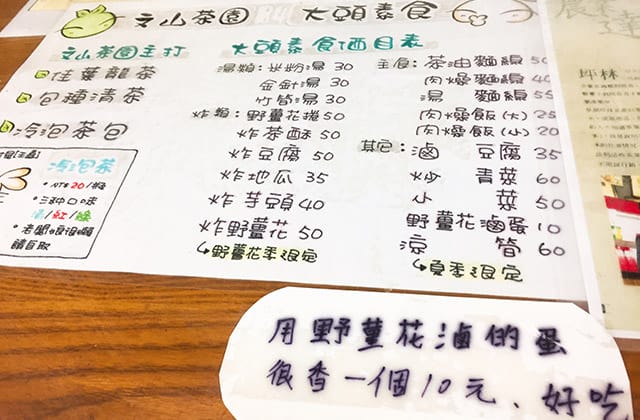 文山茶園 R4 大頭素食
文山茶園主打
佳葉龍茶
包種清茶
冷泡茶包
冷泡茶
• NT$ 20/瓶
• 三種口味
清/紅/綠
大頭素食価目表
湯類:米粉湯 30
金針湯 30
竹筍湯 30
炸類:野薑花捲 50
炸茶酥 50
炸豆腐 50
炸地瓜 35
炸芋頭 40
炸野薑花 50
↳野薑花季限定
主食:茶油麵線 50
肉燥麵線 40
湯麵線 55
肉燥飯(大) 25
肉燥飯(小) 20
其它:滷豆腐 35
炒青菜 60
小菜 50
野薑花滷蛋 10
涼筍 60
↳夏季限定
坪林
用野薑花滷的蛋
很香一個10元、好吃